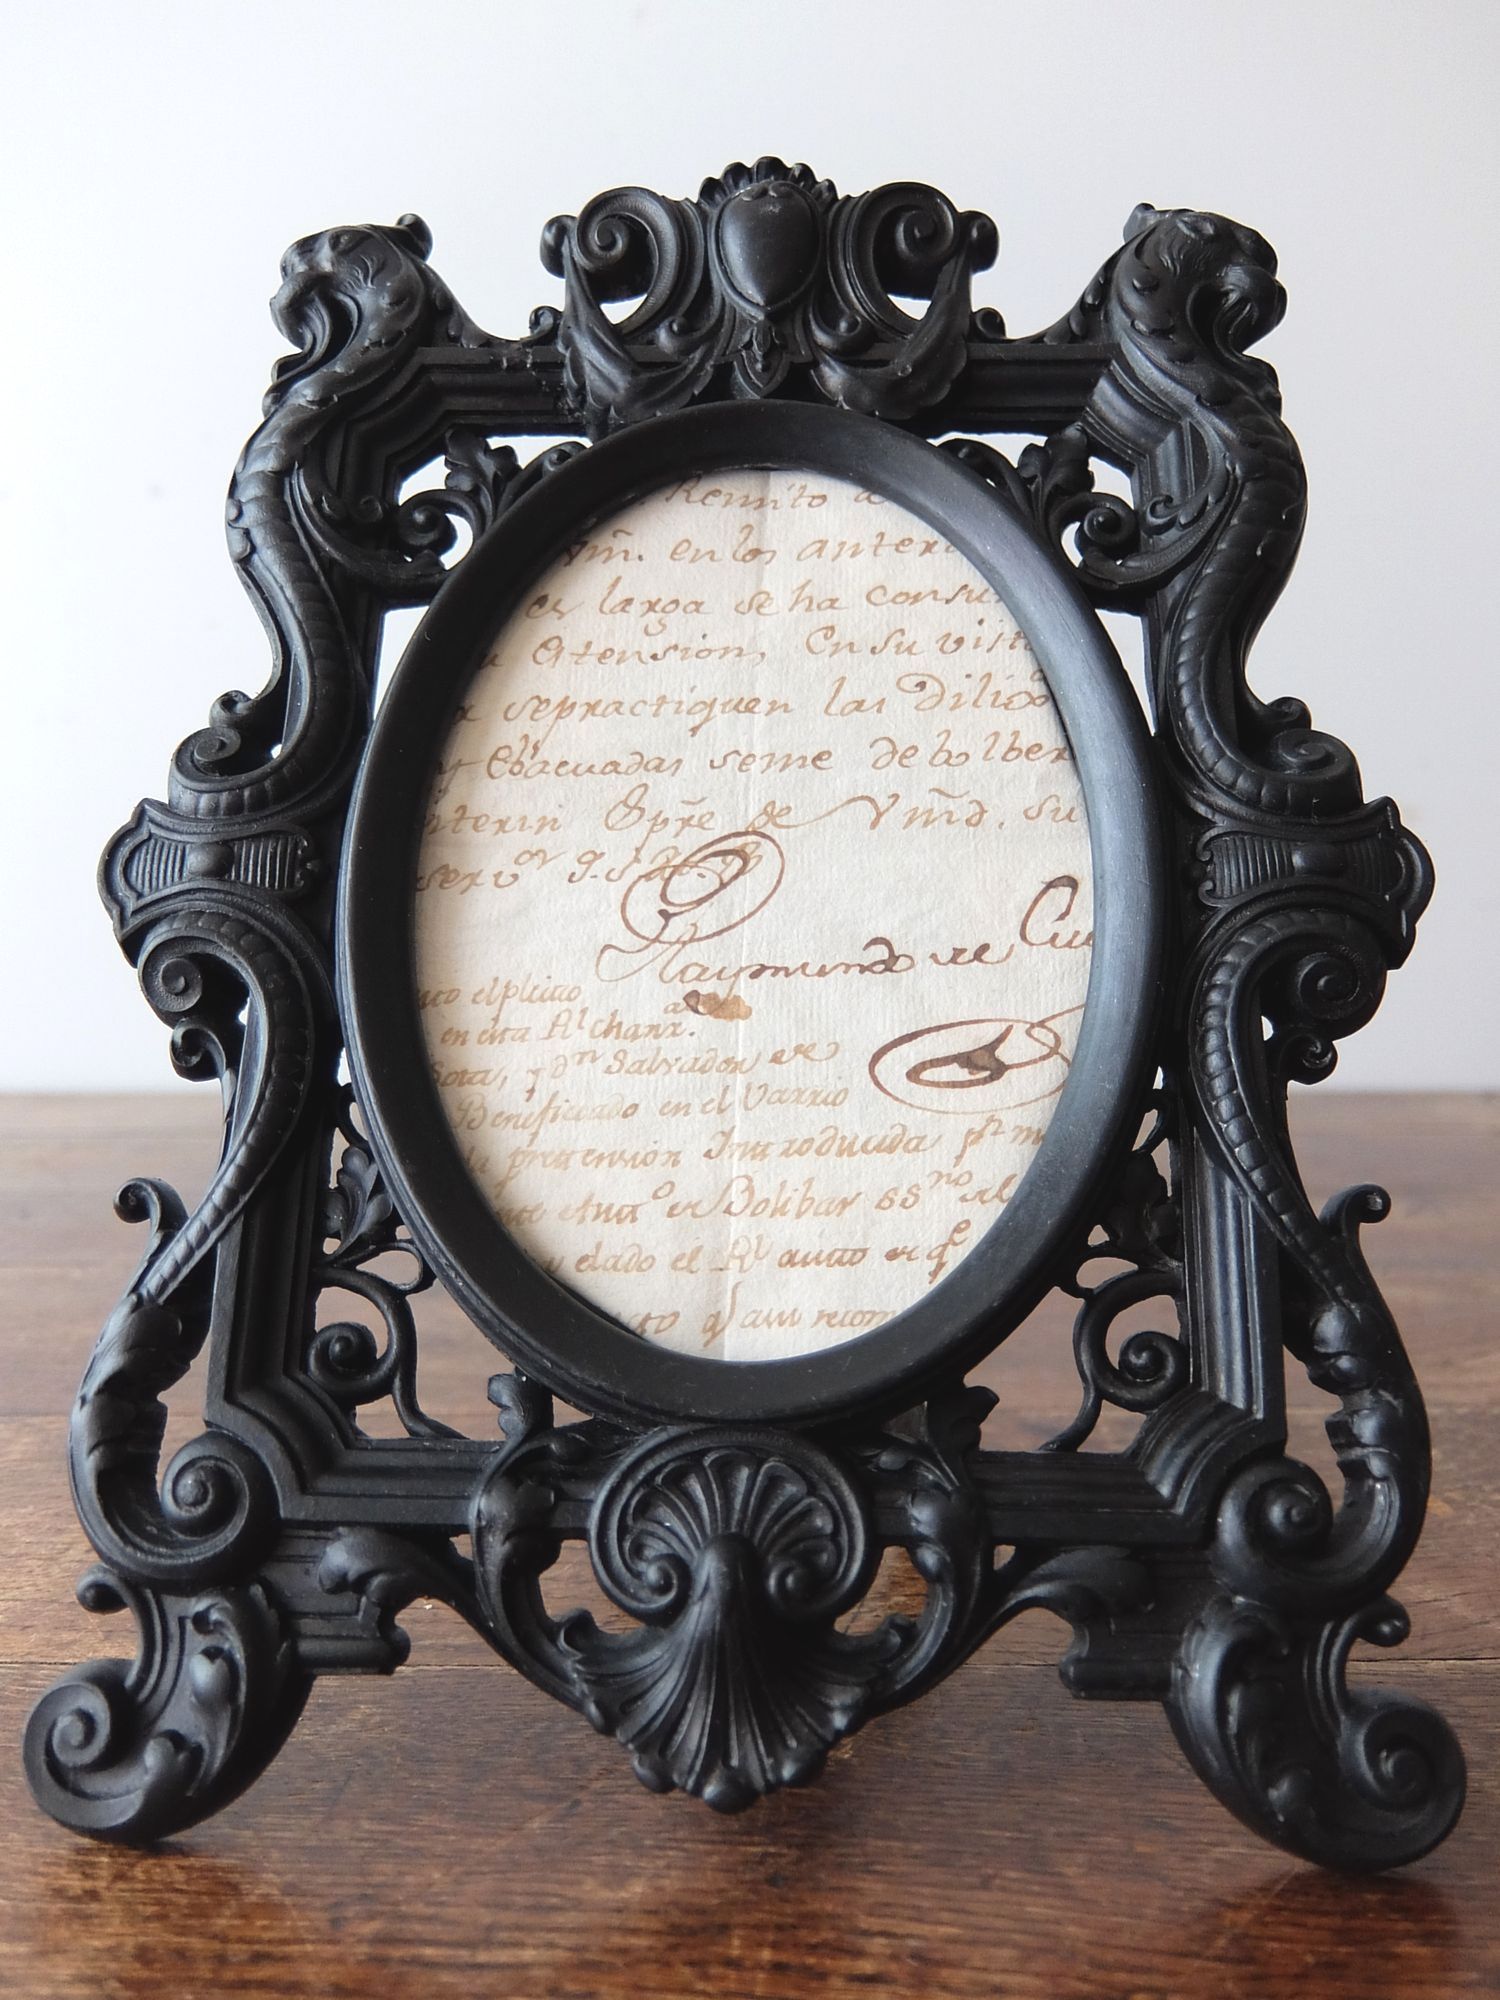 Remito a
Vm̃. en los anteri
es larga se ha consu
Atension, En su vista
sepractiquen las Dilig
y Ebacuadas seme debolber
nterin Gp̃re de Vm̃d. su
serv.or q.
Raymundo de Cu
elpleito
en esta Rl chanz.a
Sota, y dn Salvador de
Beneficiado en el Varrio
la pretension Introducida pr m
de Bolibar ssno del
y dado el Rl auto de qe
recom